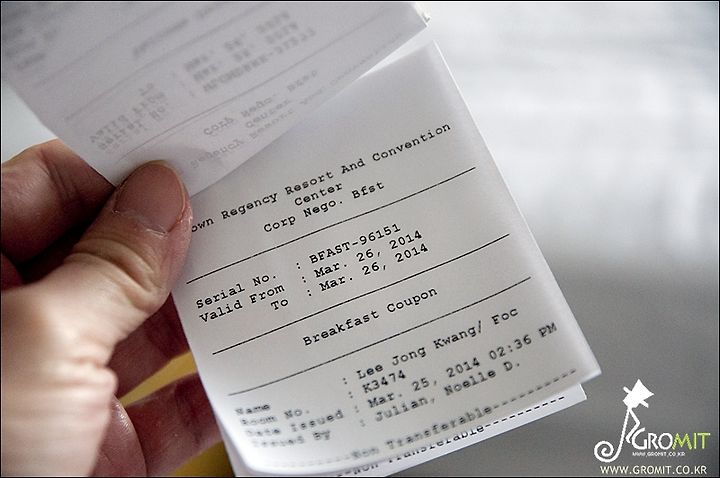 own Regency Resort And Convention
Center
Corp Nego. Bfst
Serial No. : BFAST-96151
Valid From : Mar. 26, 2014
To : Mar. 26, 2014
Breakfast Coupon
Name : Lee Jong Kwang/ Foc
Room No. : K3474
Date Issued : Mar. 25, 2014 02:36 PM
Issued By : Julian, Noelle D.
----------Non Transferable----------
Non Transferable----------
GROMIT
WWW.GROMIT.CO.KR
WWW.GROMIT.CO.KR